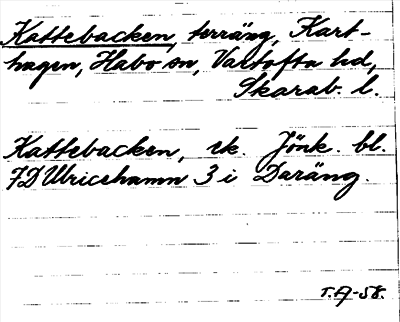 Kattebacken, terräng, Kart-
hagen, Habo sn, Vartofta hd,
Skarab. l.
Kattebacken, ek. Jönk. bl.
7D Ulricehamn 3 i Daräng.
T.A-58.